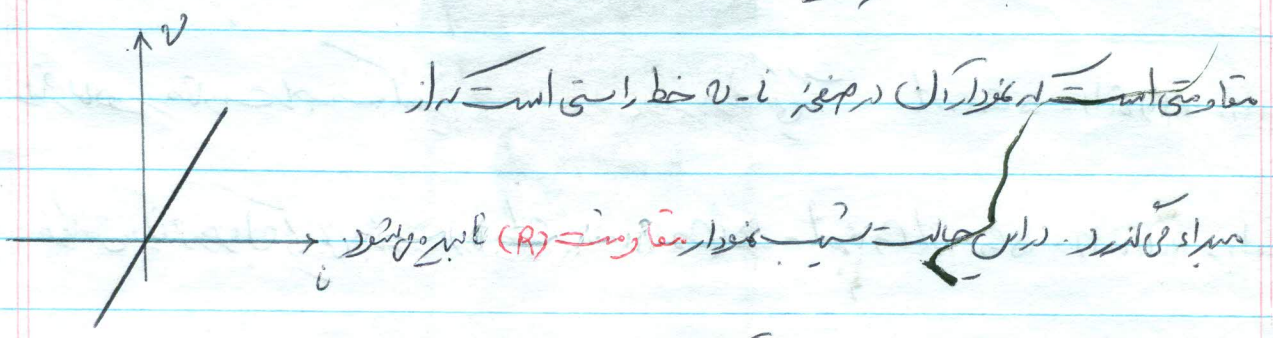 v
مقاومتی است که نمودار آن در صفحهٔ v-i خط راستی است که از
مبداء می‌گذرد. در این حالت شیب نمودار مقاومت (R) نامیده می‌شود.
i